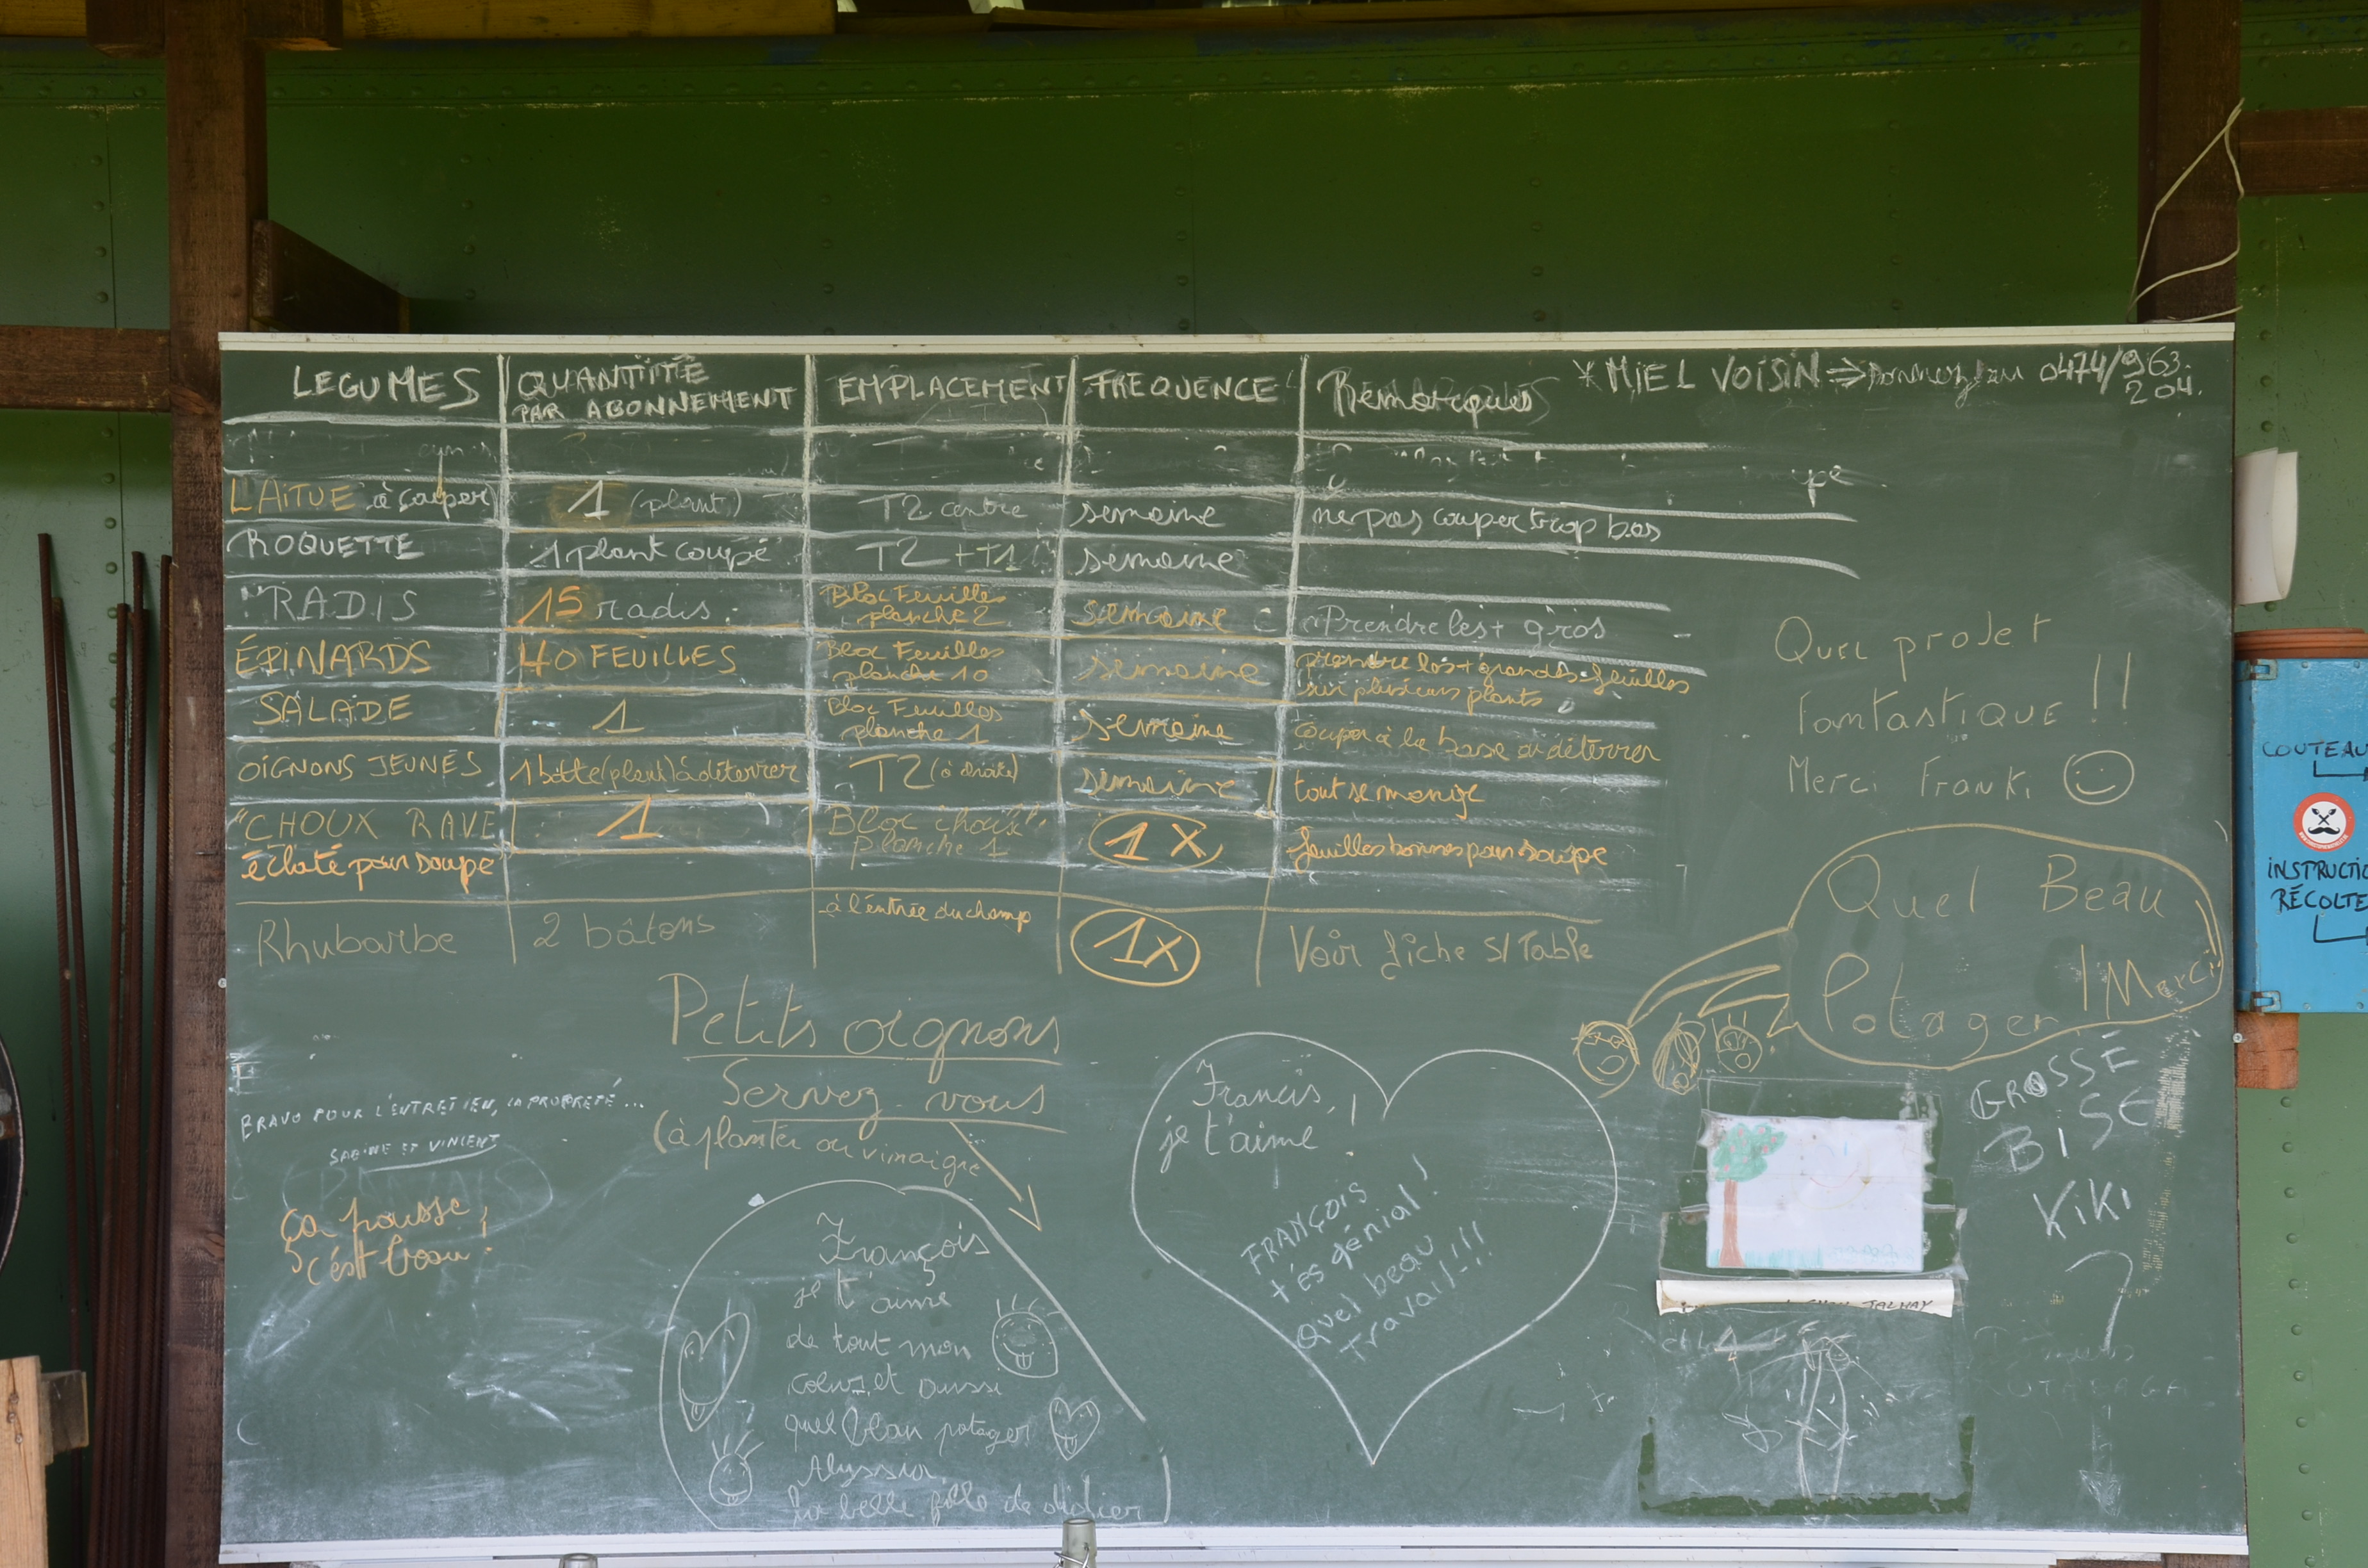 LEGUMES QUANTITÉ PAR ABONNEMENT EMPLACEMENT FREQUENCE Remarques
* MIEL VOISIN ⇒ 0474/963.
204.
LAITUE à couper) 1 (plant) T2 centre semaine ne pas couper trop bas
ROQUETTE 1 plant coupé T2 + T1 semaine
RADIS 15 radis Bloc Feuilles planche 2 semaine Prendre les + gros
ÉPINARDS 40 FEUILLES Bloc Feuilles planche 10 semaine prendre les + grandes feuilles
sur plusieurs plants
SALADE 1 Bloc Feuilles planche 1 semaine couper à la base ou déterrer
OIGNONS JEUNES 1 botte (plant) à déterrer T2 (à droite) semaine tout se mange
CHOUX RAVE 1 Bloc planche 1 1X feuilles bonnes pour soupe
éclaté pour soupe
Rhubarbe 2 bâtons à l'entrée du champ 1X Voir fiche S/Table
Quel projet
fantastique !!
Merci Franki
Quel Beau
Potager ! Merci
Petits oignons
Servez-vous
(à planter ou vinaigre
BRAVO POUR L'ENTRETIEN, LA PROPRETÉ...
SABINE ET VINCENT
ça pousse,
c'est beau
François
je t'aime
de tout mon
coeur et aussi
quel beau potager
Alyssia
la belle fille de didier
Francis,
je t'aime !
FRANÇOIS
t'es génial !
Quel beau
Travail !!!
GROSSE
BISE
KiKi
?
JALHAY
COUTEAU
INSTRUCTIO
RÉCOLTE